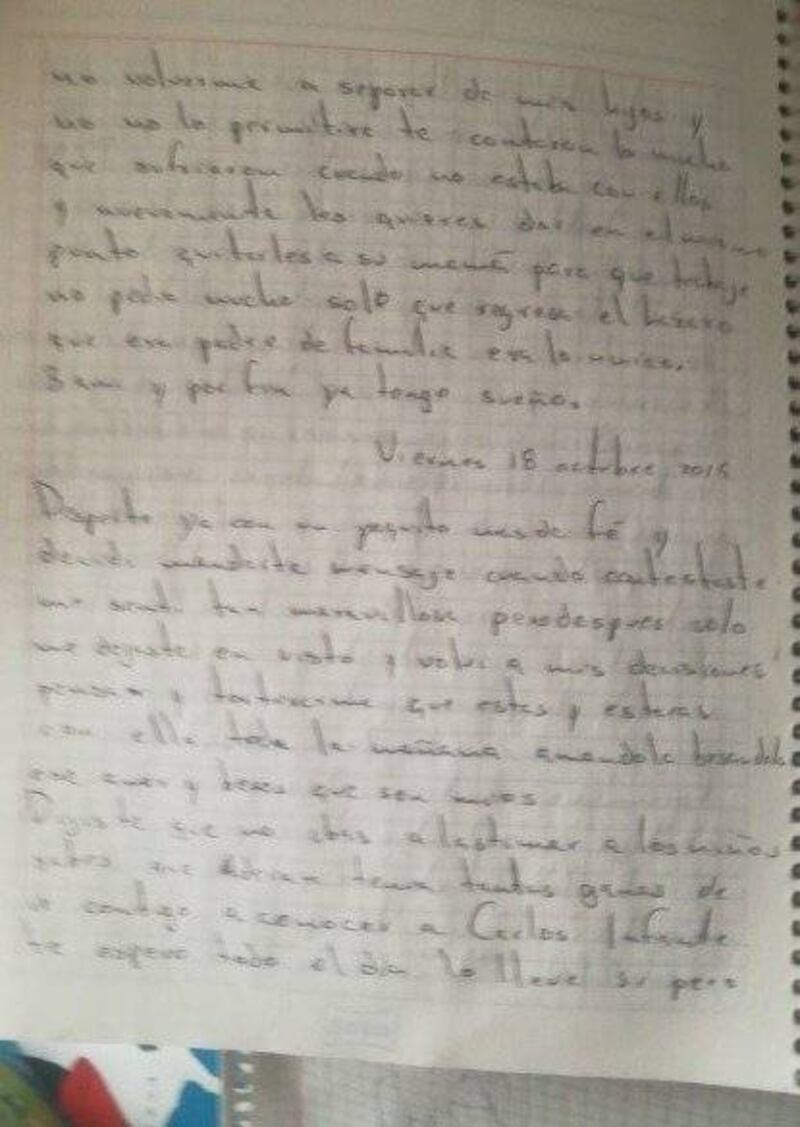 no volverme a separar de mis hijos y
no no lo permitire te contaron lo mucho
que sufrieron cuando no estaba con ellos
y nuevamente los quieres dar en el mismo
punto quitarles a su mamá para que trabaje
no pedia mucho solo que regresa el
que era padre de familia era lo unico.
3 am y por fin ya tengo sueño.
Viernes 18 octubre,
Desperte ya con un poquito mas de fé y
decidi mandarte mensaje cuando contestaste
me senti tan maravillosa pero despues solo
me dejaste en visto y volvi a mis
pensar y que estas y estaras
con ella toda la mañana amandola besandola
ese amor y besos que son mios
Dijiste que no ibas a lastimar a los niños
sabes que tenia tantas ganas de
ir contigo a conocer a Carlos Infante
te espero todo el dia lo lleve si pero